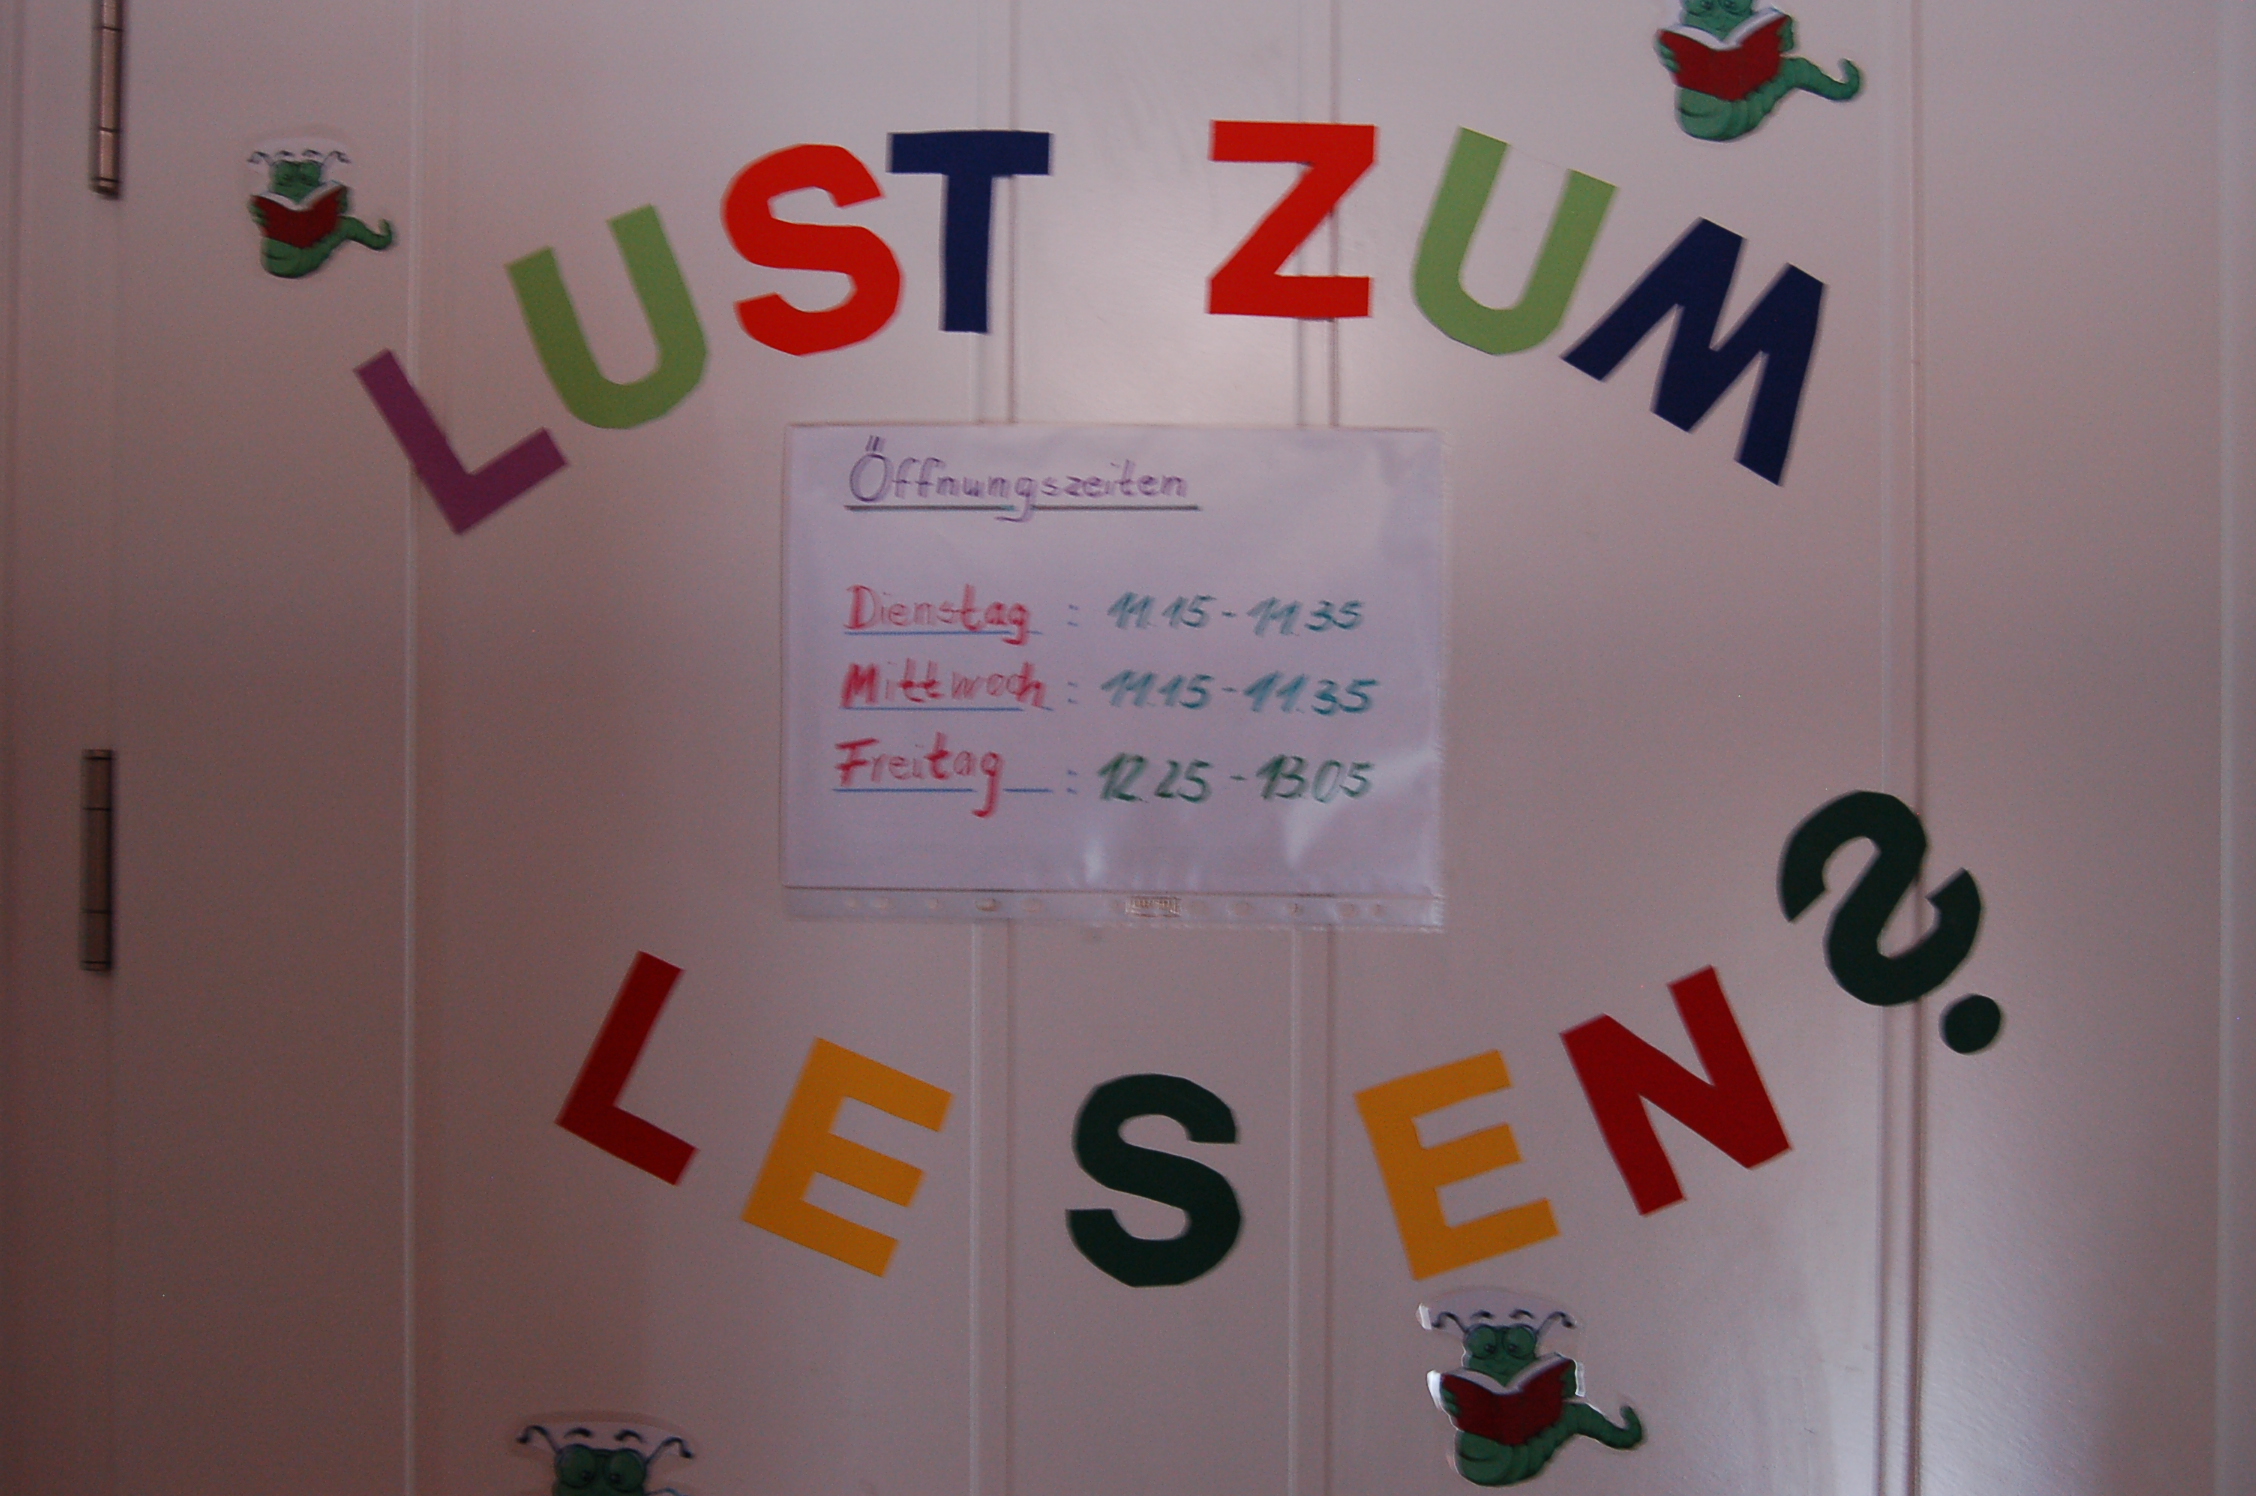 LUST ZUM
Öffnungszeiten
Dienstag : 11.15 - 11.35
Mittwoch : 11.15 - 11.35
Freitag : 12.25 - 13.05
LESEN?